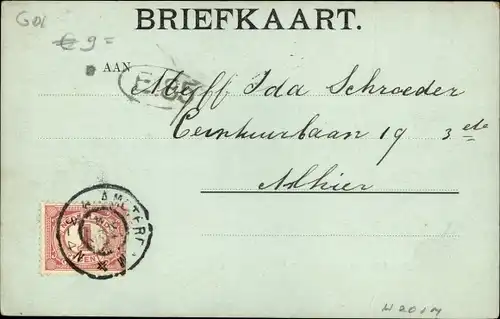 GOI
BRIEFKAART.
€ 9=
AAN Mejff Ida Schroeder
Ceintuurbaan 19 3 de
Alhier
AMSTERDAM
W2017